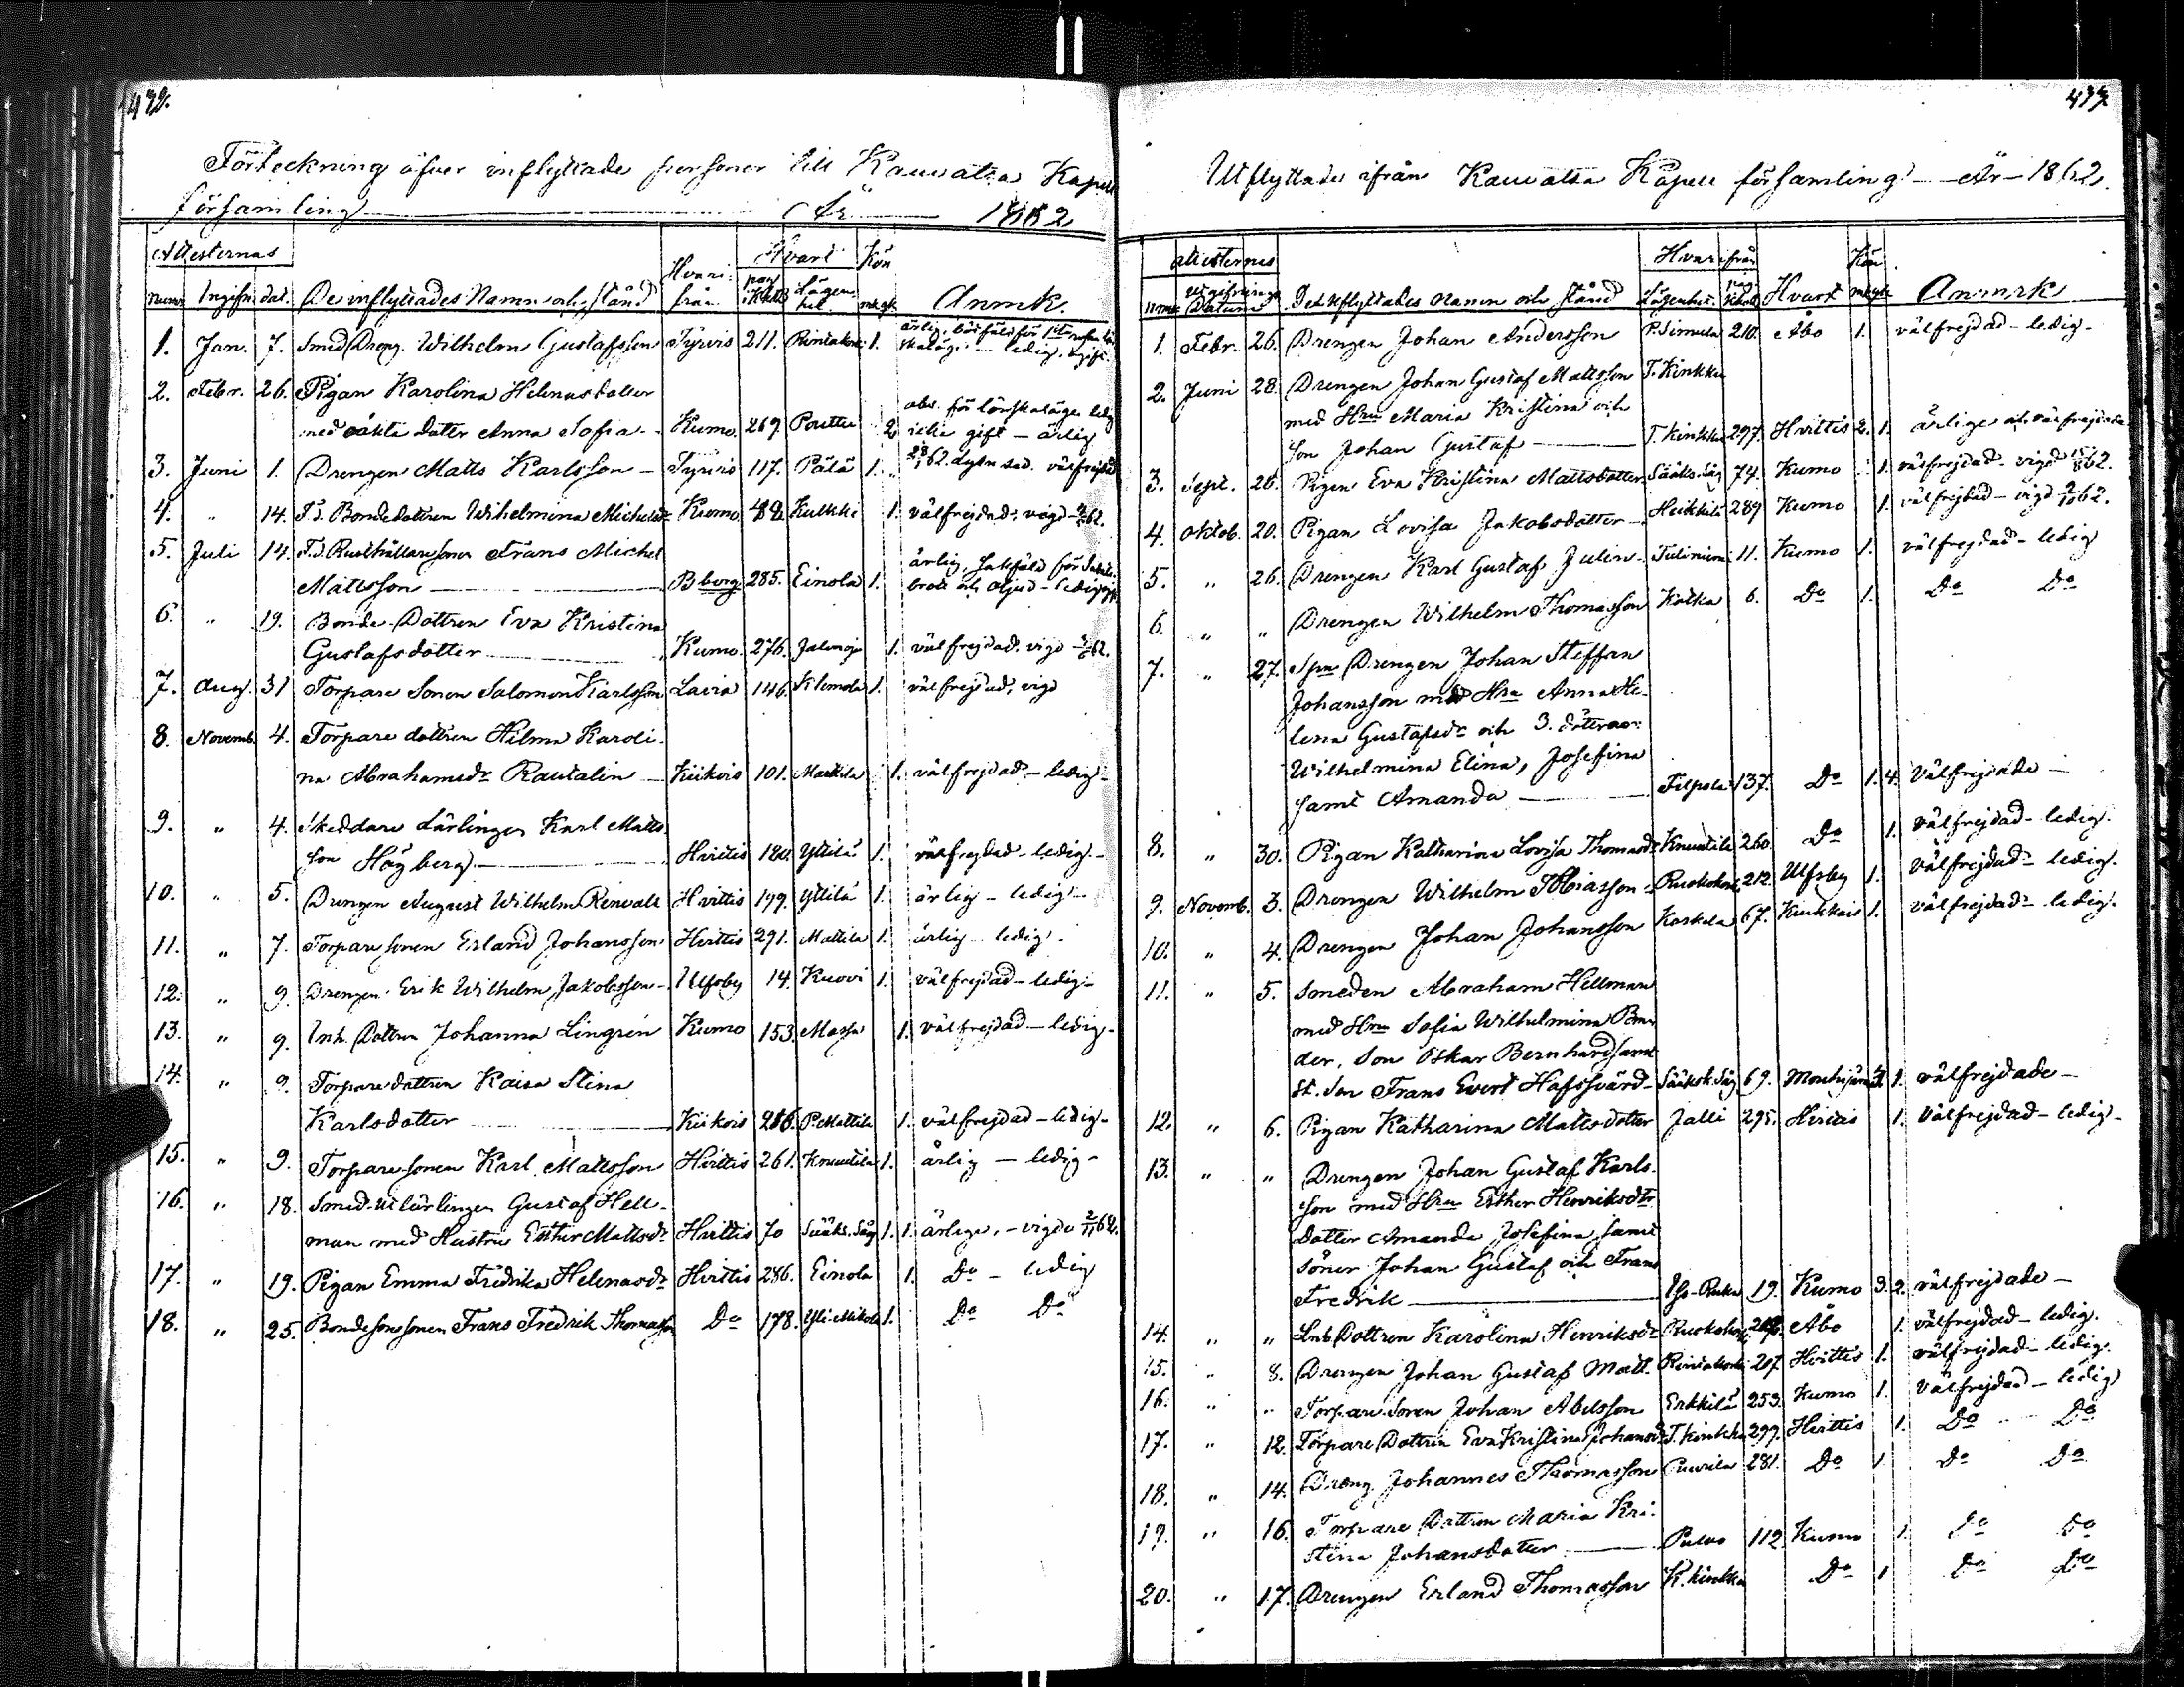 472.
Förteckning öfver inflyttade personer till Kauvatsa Kapell
församling År 1862
Attesternas Hvart Kön
num Ingifn. dat. De inflyttades Namn och stånd Hvarifrån pag Lägenhet mk qk Anmk.
1. Jan. 7. Smed Dreng. Wilhelm Gustafsson Tyrvis 211. 1. ledig
2. Febr. 26. Pigan Karolina Helenasdotter
med oäkta dotter Anna Sofia Kumo 269 Pouttu 2 icke gift – ärlig
3. Juni 1. Drengen Matts Karlsson Tyrvis 117. Pälä 1. välfrejdad
4. " 14. Bondedottren Wilhelmina Kumo Kulkki 1. välfrejdad, vigd
5. Juli 14. Rusthållaresonen Frans Michel
Mattsson Bberg 285. Einola 1. ärlig,
6. " 19. Bonde Dottren Eva Kristina
Gustafsdotter Kumo 276. 1. välfrejdad. vigd
7. Aug. 31 Torpare Sonen Salomon Karlsson Lavia 146. Klemola 1. välfrejdad, vigd
8. Novemb. 4. Torpare dottren Hilma Karoli-
na Abrahamsdr Rautalin Kiikois 101. Markila 1. välfrejdad – ledig
9. " 4. Skeddare Lärlingen Karl Matts
son Högberg Hvittis Yttilä 1. välfrejdad – ledig
10. " 5. Drengen August Wilhelm Renvall Hvittis 199. Yttilä 1. ärlig – ledig
11. " 7. Torpare sonen Erland Johansson Hvittis 291. Mattila 1. ärlig ledig
12. " 9. Drengen Erik Wilhelm Jakobsson Ulfsby 14. Kuovi 1. välfrejdad – ledig
13. " 9. Inh. Dottren Johanna Lingrén Kumo 153 Massa 1. välfrejdad – ledig
14. " 9. Torpare dottren Kaisa Stina
Karlsdotter Kiikois 286. P. Mattila 1. välfrejdad – ledig
15. " 9. Torpare sonen Karl Mattsson Hvittis 261. Knuutila 1. ärlig – ledig
16. " 18. Smedslärlingen Gustaf Hell-
man med Hustru Esther Mattsdr Hvittis 70 Sääks. Såg 1. 1. ärliga, – vigda 2/11 62.
17. " 19. Pigan Emma Fredrika Helenasdr Hvittis 286. Einola 1. Do – ledig
18. " 25. Bondesonssonen Frans Fredrik Thomasson Do 178. Yli-Mikola 1. Do Do
Utflyttade ifrån Kauvatsa Kapell församling År 1862.
attesternes Hvarifrån Kön
utgifnings
num Datum De utflyttades namn och stånd Lägenhet Hvart Anmrk
1. Febr. 26. Drengen Johan Andersson P. Simula 210. Åbo 1. välfrejdad – ledig
2. Juni 28. Drengen Johan Gustaf Mattsson T. Kinkku
med Hru Maria Kristina och
Son Johan Gustaf T. Kinkku 297. Hvittis 2. 1. ärliga och välfrejdade
3. Sept. 26. Pigan Eva Kristina Mattsdotter Sääks. Såg 74. Kumo 1. välfrejdad – vigd
4. Oktob. 20. Pigan Lovisa Jakobsdotter Heikkilä 289 Kumo 1. välfrejdad – vigd
5. " 26. Drengen Karl Gustaf Julin 11. Kumo 1. välfrejdad – ledig
6. " " Drengen Wilhelm Thomasson Kotka 6. Do 1. Do Do
7. " 27. Drengen Johan Steffan
Johansson med Hru Anna He-
lena Gustafsdr och 3. döttrar:
Wilhelmina Elina, Josefina
samt Amanda Filpola 137. Do 1. 4. Välfrejdade
8. " 30. Pigan Katharina Lovisa Thomasdr Knuutila 260. Do 1. välfrejdad – ledig.
9. Novemb. 3. Drengen Wilhelm 212. Ulfsby 1. välfrejdad – ledig.
10. " 4. Drengen Johan Johansson Koskela 67. 1. välfrejdad – ledig.
11. " 5. Smeden Abraham Hellman
med Hru Sofia Wilhelmina
der, Son Oskar Bernhard samt
St. Son Frans Evert Hafssvärd Sääksk. Såg 69. 1. välfrejdade
12. " 6. Pigan Katharina Mattsdotter Jalli 295. Hvittis 1. välfrejdad – ledig
13. " " Drengen Johan Gustaf Karls-
son med Hru Esther Henriksdtr
dotter Amanda Josefina samt
söner Johan Gustaf och Frans
Fredrik 19. Kumo 3. 2. välfrejdade
14. " " Inh. Dottren Karolina Henriksdr Åbo 1. välfrejdad – ledig.
15. " 8. Drengen Johan Gustaf Matt. 207. Hvittis 1. välfrejdad – ledig.
16. " " Torpare Sonen Johan Abelsson Erkkilä 253. Kumo 1. välfrejdad – ledig
17. " 12. Torpare Dottren Eva Kristina Johansdr T. Kinkku 299. Hvittis 1. Do Do
18. " 14. Dreng. Johannes Thomasson 281. Do 1 Do Do
19. " 16. Torpare Dottren Maria Kri-
stina Johansdotter 112 Kumo 1. Do Do
20. " 17. Drengen Erland Thomasson K. Kinkku Do 1 Do Do